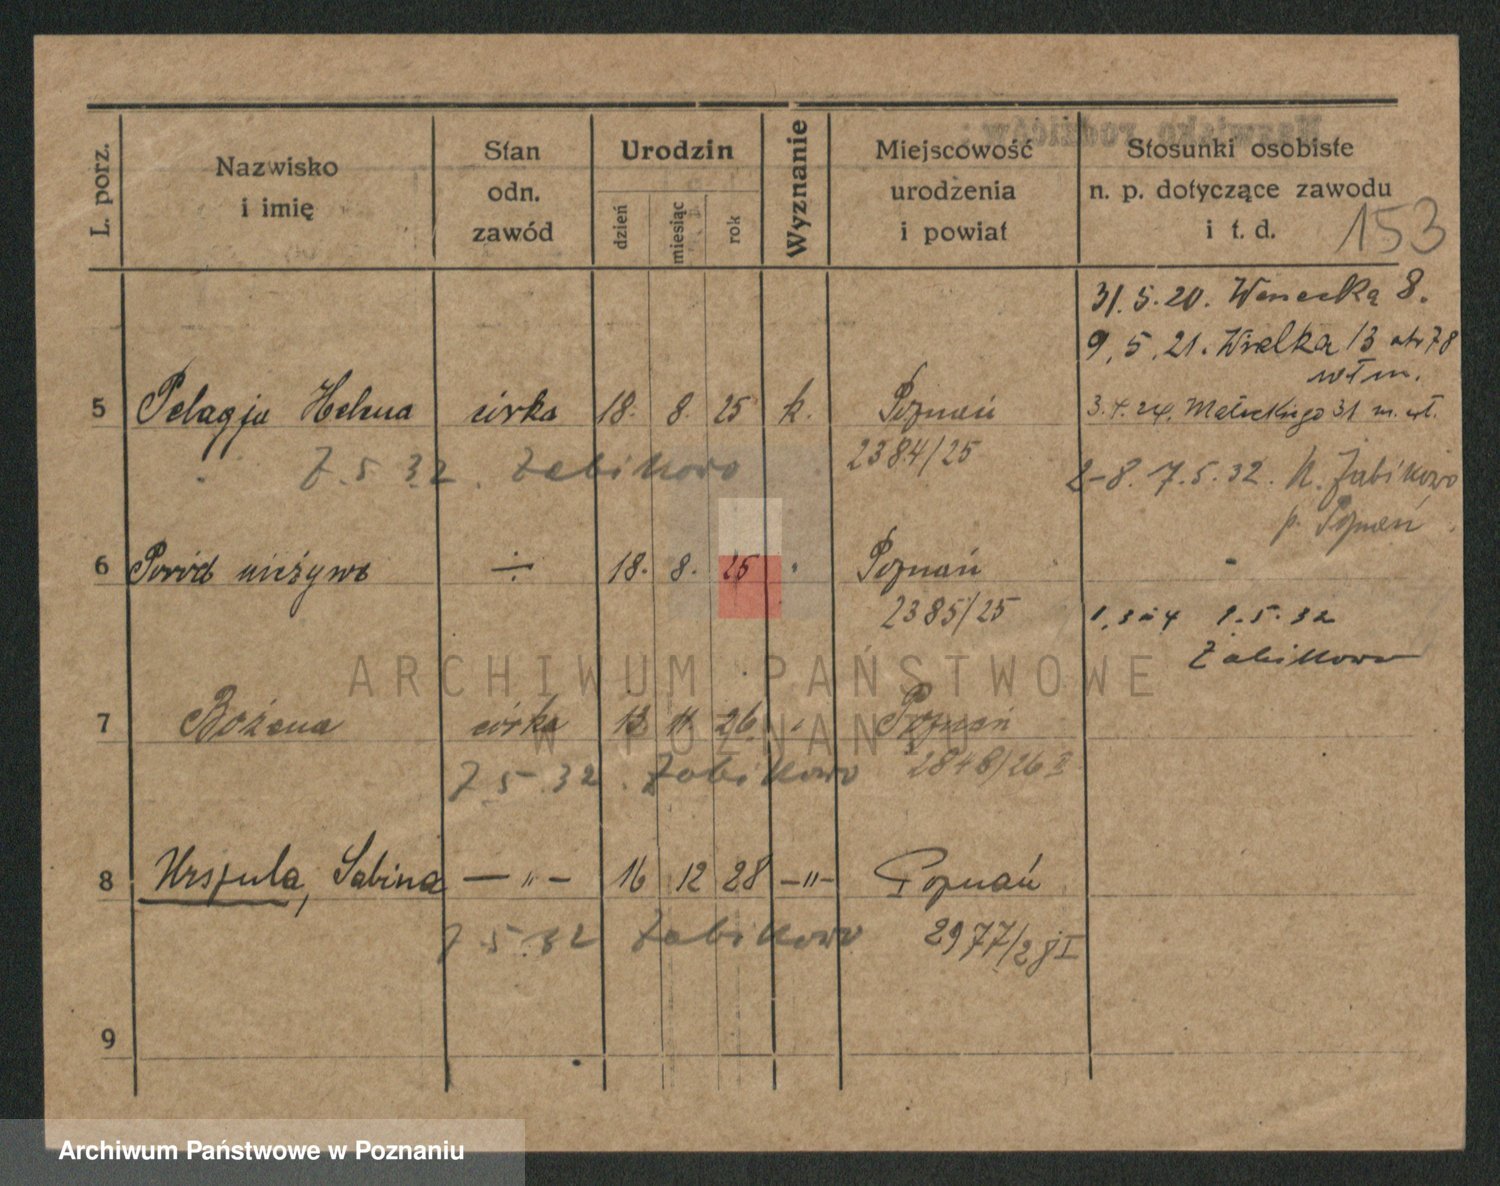 L. porz.
Nazwisko i imię
Stan odn. zawód
Urodzin
dzień miesiąc rok
Wyznanie
Miejscowość urodzenia i powiat
Stosunki osobiste n. p. dotyczące zawodu i t. d.
153
31.5.20. Wenecka 8.
9.5.21. Wielka 13
włm.
5 Pelagja Helena córka 18. 8. 25 k. Poznań
3.4.24. Małeckiego 31 m. wł.
2384/25
7.5.32. Żabikowo
2-8. 7.5.32. Żabikowo
p. Poznań
6 Poród nieżywo ÷ 18. 8. 25 Poznań
2385/25
5.32
Żabikowo
7 Bożena córka 13 11 26 Poznań
2848/26 II
7.5.32. Żabikowo
8 Urszula, Sabina —〃— 16 12 28 —〃— Poznań
2977/28 I
7.5.32 Żabikowo
9
ARCHIWUM PAŃSTWOWE
W POZNANIU
Archiwum Państwowe w Poznaniu